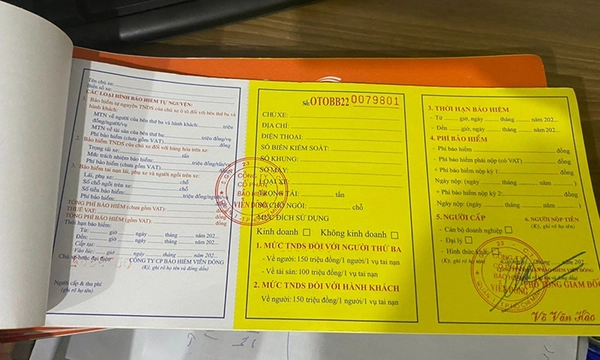 Tên chủ xe:
Biển số xe:
CÁC LOẠI HÌNH BẢO HIỂM TỰ NGUYỆN:
Bảo hiểm tự nguyện TNDS của chủ xe ô tô đối với bên thứ ba và
hành khách:
MTN về người của bên thứ ba và hành khách: triệu
đồng/người/vụ
MTN về tài sản của bên thứ ba: triệu đồng/vụ
Phí bảo hiểm (chưa gồm VAT): đồng
2. Bảo hiểm TNDS của chủ xe đối với hàng hóa trên xe:
Trọng tải xe: tấn
Mức trách nhiệm bảo hiểm: triệu đồng/tấn/vụ
Phí bảo hiểm (chưa gồm VAT): đồng
3. Bảo hiểm tai nạn lái, phụ xe và người ngồi trên xe:
Lái, phụ xe: chỗ
Số chỗ ngồi trên xe: chỗ
Số tiền bảo hiểm: triệu đồng/người
Phí bảo hiểm: đồng
TỔNG PHÍ BẢO HIỂM (chưa gồm VAT): đồng
THUẾ VAT: đồng
TỔNG PHÍ BẢO HIỂM: đồng
Thời hạn bảo hiểm:
Từ: giờ, ngày tháng năm 202
Đến: giờ, ngày tháng năm 202
Cấp tại: ngày tháng năm 202
CÔNG TY CP BẢO HIỂM VIỄN ĐÔNG
(Ký, ghi rõ họ tên và đóng dấu)
Người cấp & thu phí
(ghi rõ họ tên)
CÔNG TY
CỔ PHẦN
BẢO HIỂM
VIỄN ĐÔNG
Số: OTOBB22 0079801
CHỦ XE:
ĐỊA CHỈ:
ĐIỆN THOẠI:
SỐ BIỂN KIỂM SOÁT:
SỐ KHUNG:
SỐ MÁY:
LOẠI XE:
TRỌNG TẢI: tấn
SỐ CHỖ NGỒI: chỗ
MỤC ĐÍCH SỬ DỤNG
Kinh doanh Không kinh doanh
1. MỨC TNDS ĐỐI VỚI NGƯỜI THỨ BA
- Về người: 150 triệu đồng/1 người/1 vụ tai nạn
- Về tài sản: 100 triệu đồng/1 vụ tai nạn
2. MỨC TNDS ĐỐI VỚI HÀNH KHÁCH
Về người: 150 triệu đồng/1 người/1 vụ tai nạn
3. THỜI HẠN BẢO HIỂM
- Từ: giờ, ngày tháng năm 202
- Đến: giờ, ngày tháng năm 202
4. PHÍ BẢO HIỂM
- Phí bảo hiểm đồng
- Phí bảo hiểm phải nộp (có VAT) đồng
- Phí bảo hiểm nộp kỳ 1: đồng
Ngày nộp: (ngày/ tháng/ năm)
- Phí bảo hiểm nộp kỳ 2: đồng
Ngày nộp: (ngày/ tháng/ năm)
5. NGƯỜI CẤP 6. NGƯỜI NỘP TIỀN
- Cán bộ doanh nghiệp (Ký, ghi rõ họ tên)
- Đại lý
- Hình thức khác
(Ký, ghi rõ họ tên)
CÔNG TY CP BẢO HIỂM VIỄN ĐÔNG
PHÓ TỔNG GIÁM ĐỐC
VIỄN ĐÔNG
Võ Văn Hảo